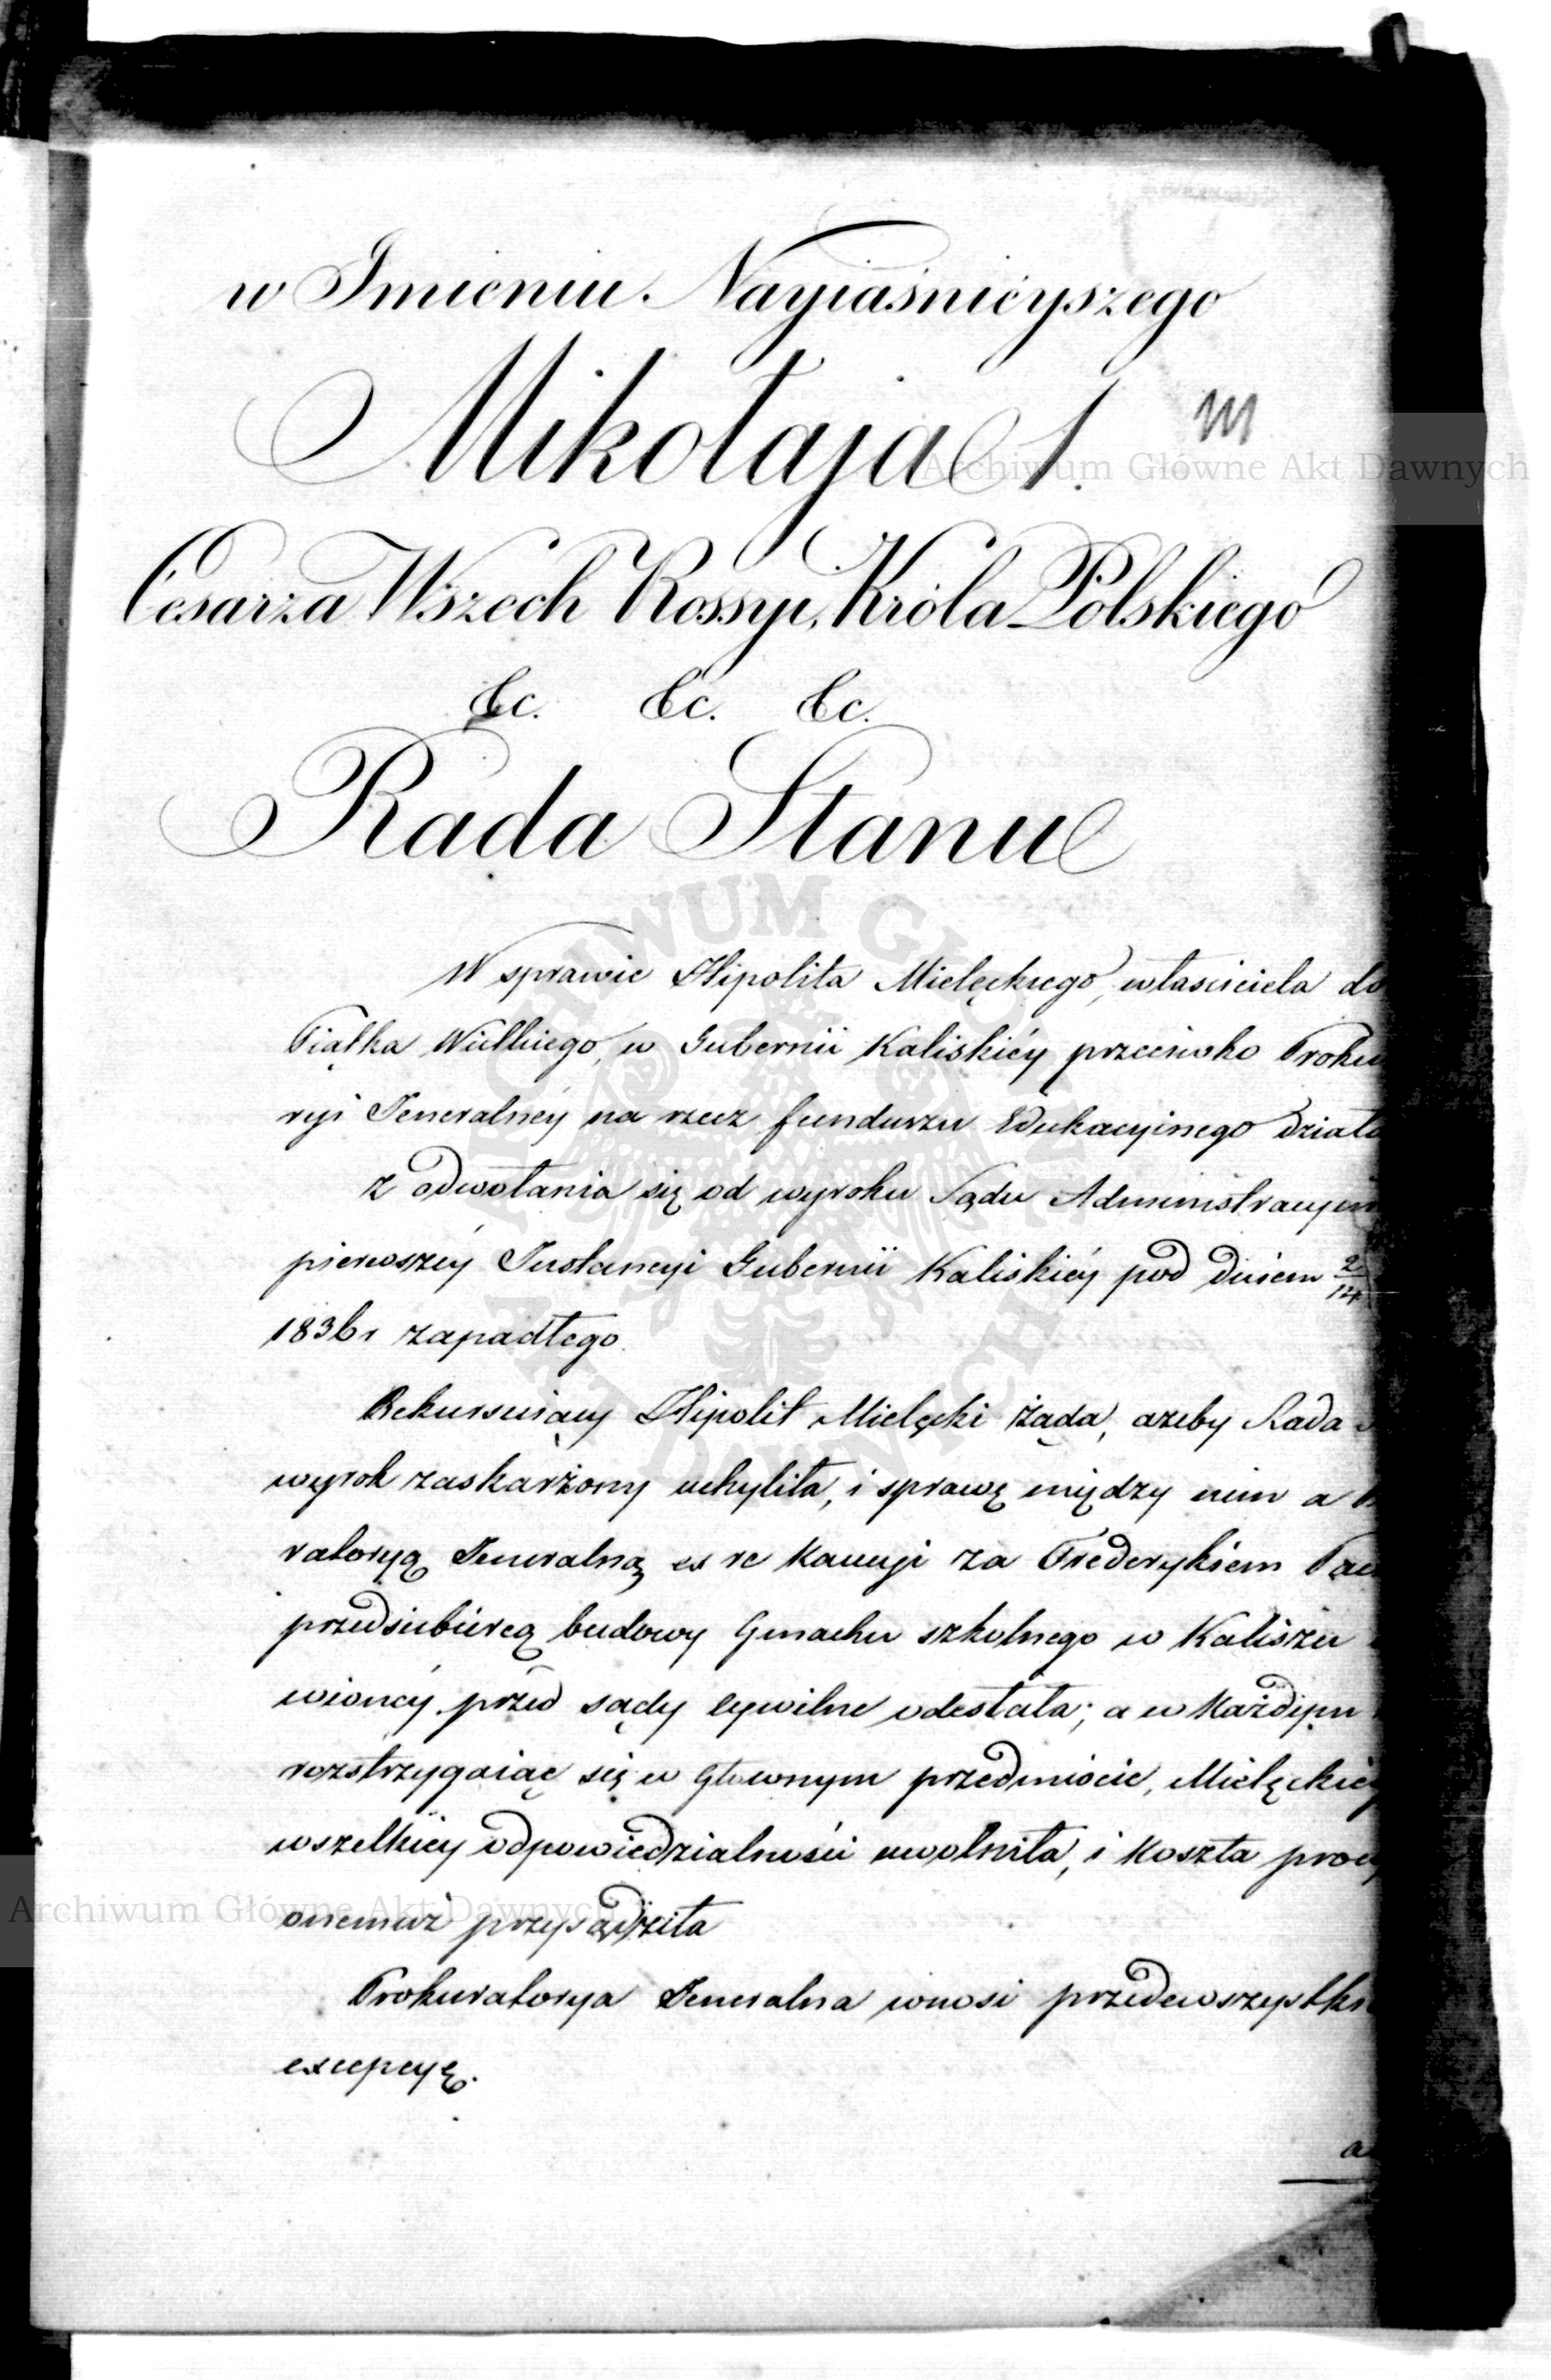 w Imieniu Nayiaśnieyszego
Mikołaja I.
Cesarza Wszech Rossyi, Króla Polskiego
&c. &c. &c.
Rada Stanu
W sprawie Hipolita Mielęckiego, właściciela dó
Piątka Wielkiego, w Gubernii Kaliskiéy przeciwko Proku
ryi Jeneralnéy na rzecz funduszu Edukacyinego działa
z odwołania się od wyroku Sądu Administracyin
pierwszéy Instancyi Gubernii Kaliskiéy pod dniem 2/14
1836 r zapadłego.
Rekursuiący Hipolit Mielęcki żąda, ażeby Rada S
wyrok zaskarżony uchyliła, i sprawę między nim a P
ratoryą Jeneralną ex re Kaucyi za Frederykiem
przedsiebiercą budowy Gmachu szkolnego w Kaliszu
wionéy przed sądy cywilne odesłała; a w każdym
rozstrzygaiąc się w głownym przedmiocie, Mielęckie
wszelkiey odpowiedzialności uwolniła, i koszta proc
onemuż przysądziła
Prokuratorya Jeneralna wnosi przedewszystki
excepcyę.
a
Archiwum Główne Akt Dawnych
Archiwum Główne Akt Dawnych
ARCHIWUM GŁÓWNE
AKT DAWNYCH